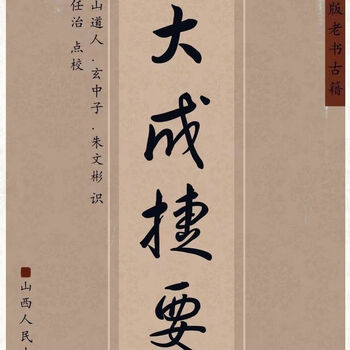 版老书古籍
大成捷要
山道人·玄中子·朱文彬 识
任治 点校
山西人民